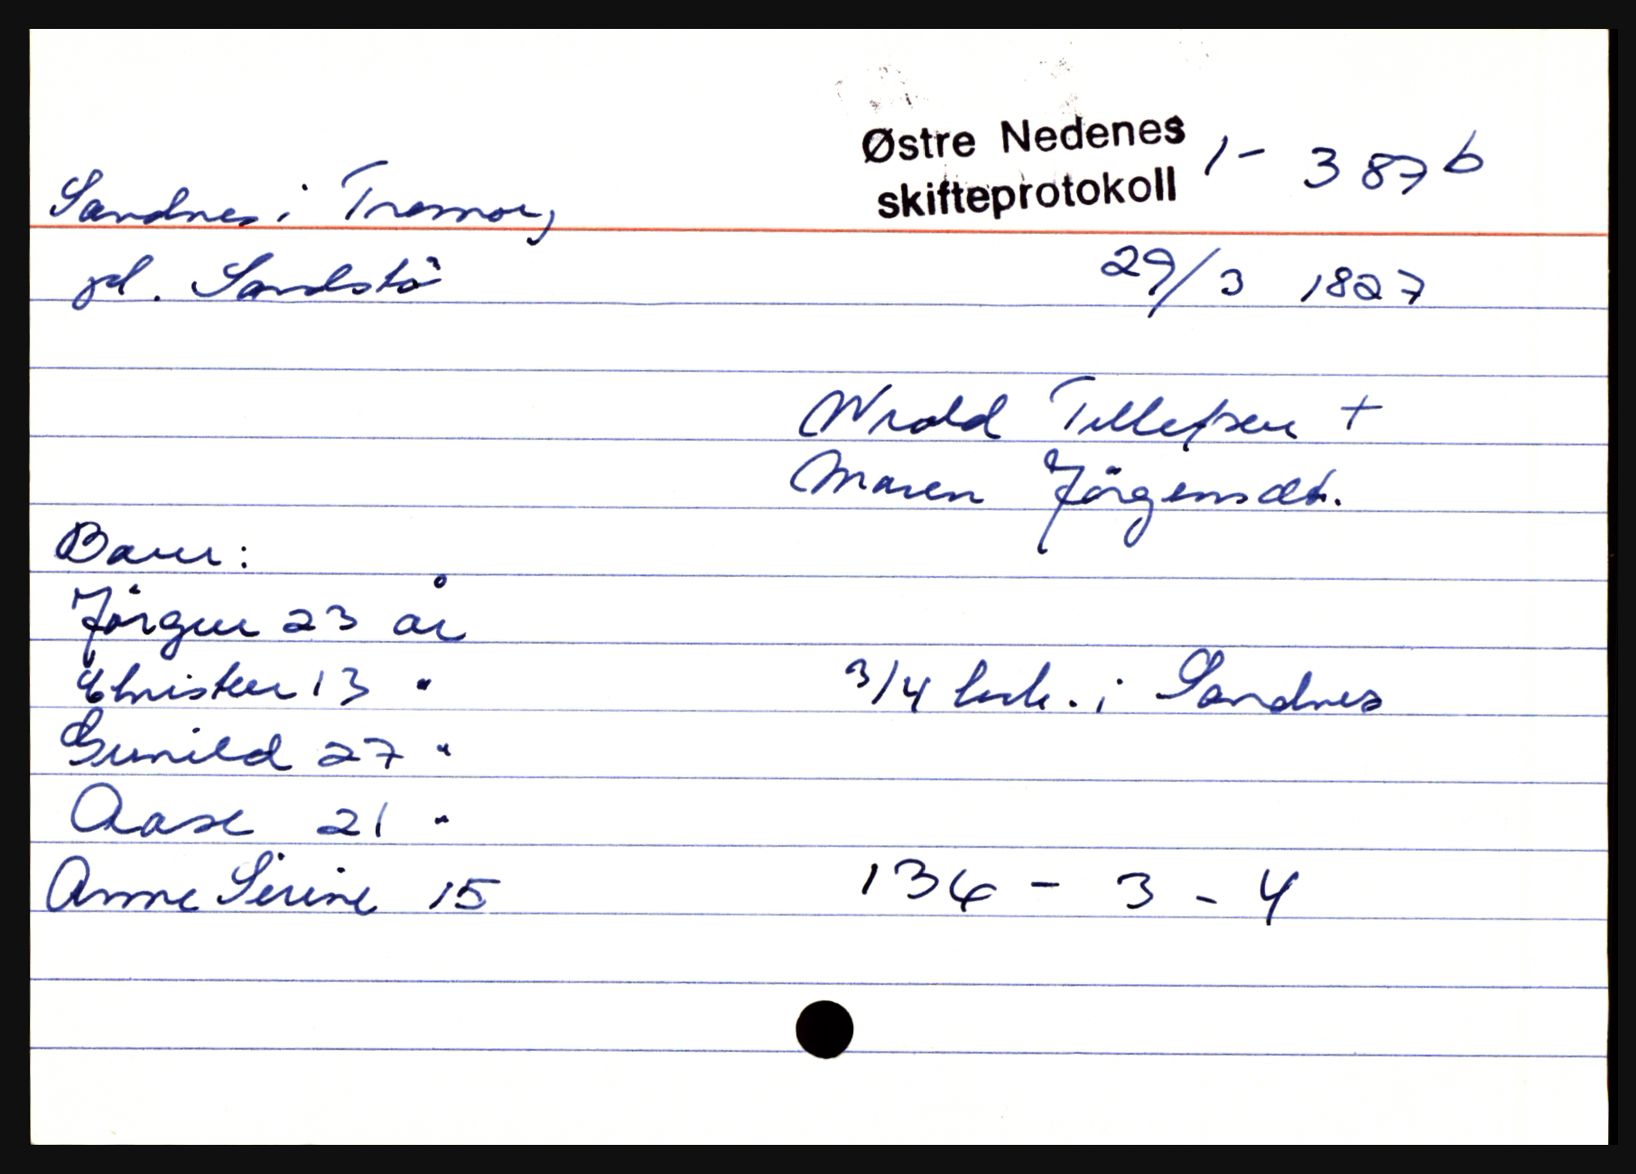 Østre Nedenes 1- 387 b
skifteprotokoll
Sandnes i Tromøy
pl. Sandstö
29/3 1827
Wrold Tellefsen +
Maren Jörgensdt.
Barn:
Jörgen 23 år
Christen 13 "
3/4 huh. i Sandnes
Gunild 27 "
Aase 21 "
Anne Serine 15
134 - 3 - 4